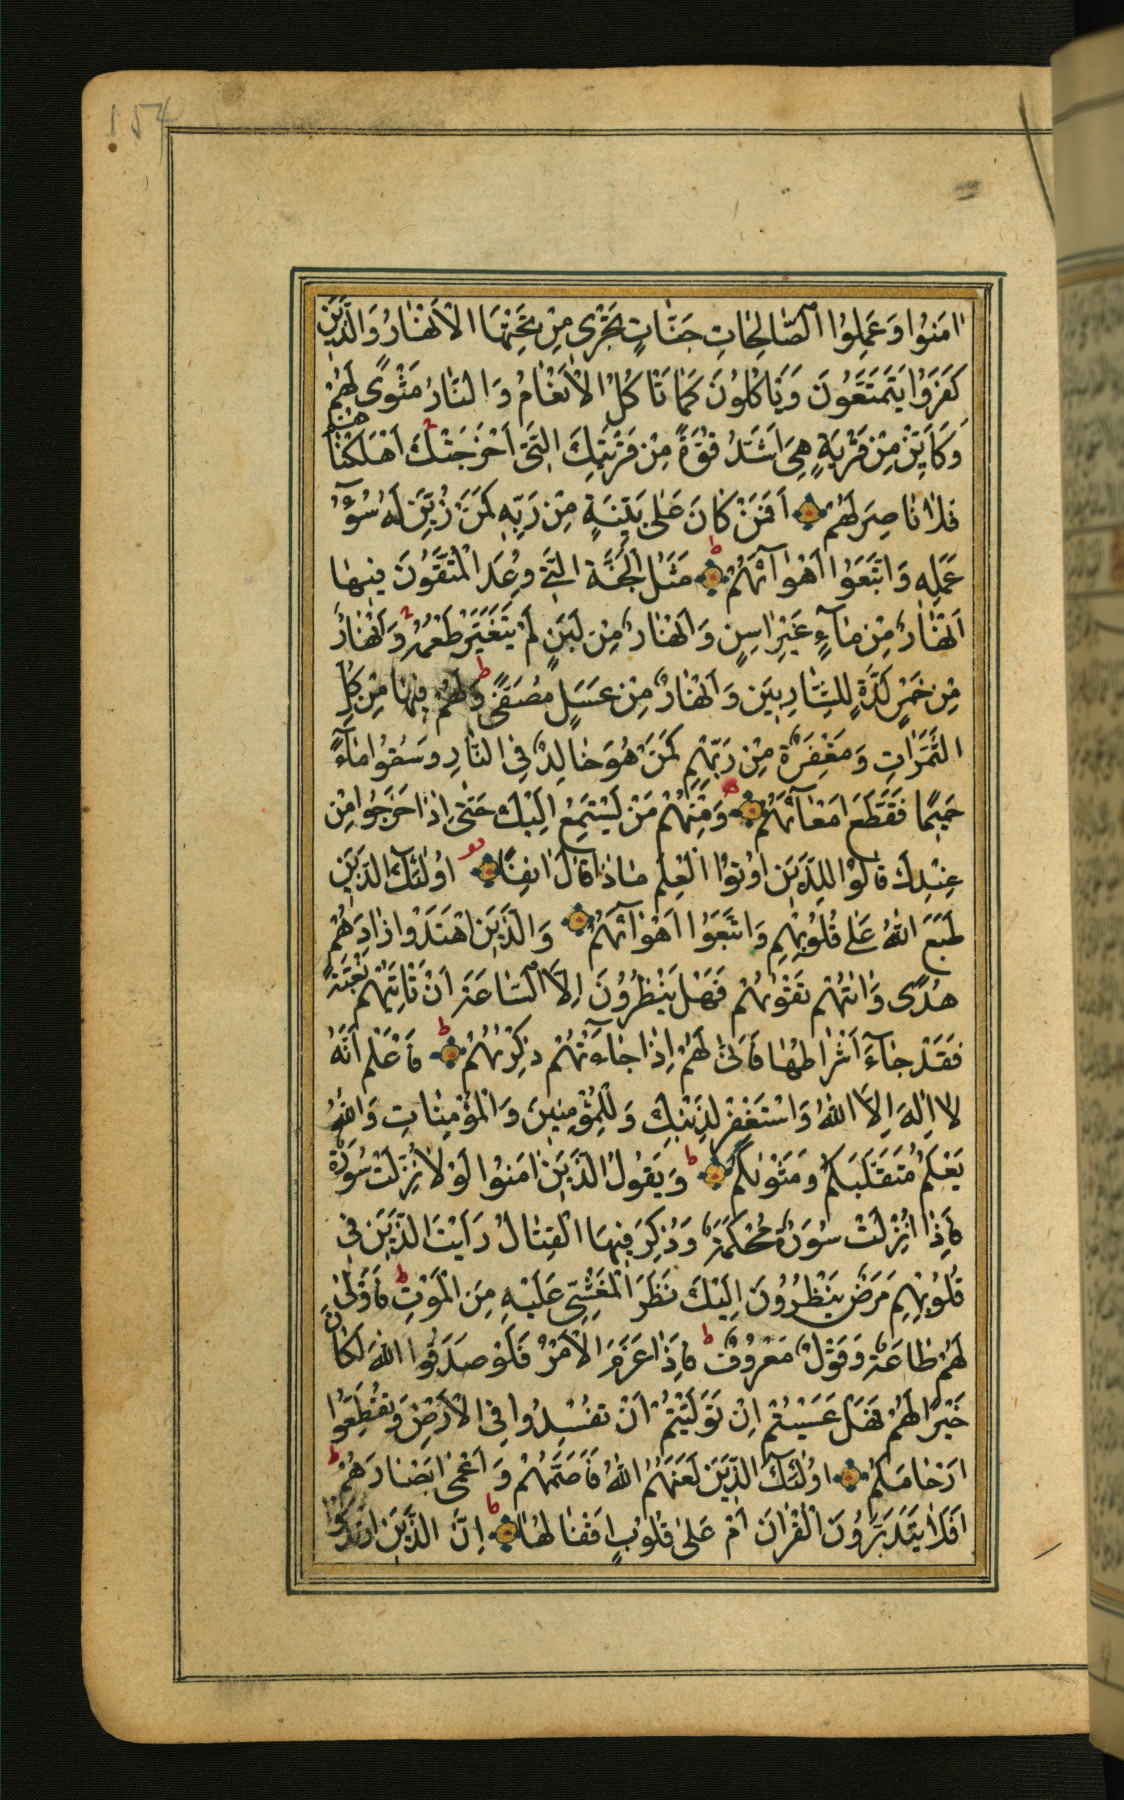 154
اٰمَنُوا وَعَمِلُوا الصَّالِحَاتِ جَنَّاتٍ تَجْرٖى مِنْ تَحْتِهَا الْاَنْهَارُ وَالَّذٖينَ
كَفَرُوا يَتَمَتَّعُونَ وَيَاْكُلُونَ كَمَا تَاْكُلُ الْاَنْعَامُ وَالنَّارُ مَثْوًى لَهُمْ
وَكَاَيِّنْ مِنْ قَرْيَةٍ هِىَ اَشَدُّ قُوَّةً مِنْ قَرْيَتِكَ الَّتٖى اَخْرَجَتْكَ اَهْلَكْنَاهُمْ
فَلَا نَاصِرَ لَهُمْ اَفَمَنْ كَانَ عَلٰى بَيِّنَةٍ مِنْ رَبِّهٖ كَمَنْ زُيِّنَ لَهُ سُوٓءُ
عَمَلِهٖ وَاتَّبَعُوا اَهْوَآئَهُمْ ط مَثَلُ الْجَنَّةِ الَّتٖى وُعِدَ الْمُتَّقُونَ فٖيهَا
اَنْهَارٌ مِنْ مَآءٍ غَيْرِ اٰسِنٍ وَاَنْهَارٌ مِنْ لَبَنٍ لَمْ يَتَغَيَّرْ طَعْمُهُ وَاَنْهَارٌ
مِنْ خَمْرٍ لَذَّةٍ لِلشَّارِبٖينَ وَاَنْهَارٌ مِنْ عَسَلٍ مُصَفًّى ط وَلَهُمْ فٖيهَا مِنْ كُلِّ
الثَّمَرَاتِ وَمَغْفِرَةٌ مِنْ رَبِّهِمْ كَمَنْ هُوَ خَالِدٌ فِى النَّارِ وَسُقُوا مَآءً
حَمٖيمًا فَقَطَّعَ اَمْعَآئَهُمْ وَمِنْهُمْ مَنْ يَسْتَمِعُ اِلَيْكَ حَتّٰى اِذَا خَرَجُوا مِنْ
عِنْدِكَ قَالُوا لِلَّذٖينَ اُوتُوا الْعِلْمَ مَاذَا قَالَ اٰنِفًا اُولٰٓئِكَ الَّذٖينَ
طَبَعَ اللّٰهُ عَلٰى قُلُوبِهِمْ وَاتَّبَعُوا اَهْوَآئَهُمْ وَالَّذٖينَ اهْتَدَوْا زَادَهُمْ
هُدًى وَاٰتٰهُمْ تَقْوٰيهُمْ فَهَلْ يَنْظُرُونَ اِلَّا السَّاعَةَ اَنْ تَاْتِيَهُمْ بَغْتَةً
فَقَدْ جَآءَ اَشْرَاطُهَا فَاَنّٰى لَهُمْ اِذَا جَآءَتْهُمْ ذِكْرٰيهُمْ ط فَاعْلَمْ اَنَّهُ
لَا اِلٰهَ اِلَّا اللّٰهُ وَاسْتَغْفِرْ لِذَنْبِكَ وَلِلْمُؤْمِنٖينَ وَالْمُؤْمِنَاتِ وَاللّٰهُ
يَعْلَمُ مُتَقَلَّبَكُمْ وَمَثْوٰيكُمْ ط وَيَقُولُ الَّذٖينَ اٰمَنُوا لَوْلَا نُزِّلَتْ سُورَةٌ
فَاِذَا اُنْزِلَتْ سُورَةٌ مُحْكَمَةٌ وَذُكِرَ فٖيهَا الْقِتَالُ رَاَيْتَ الَّذٖينَ فٖى
قُلُوبِهِمْ مَرَضٌ يَنْظُرُونَ اِلَيْكَ نَظَرَ الْمَغْشِىِّ عَلَيْهِ مِنَ الْمَوْتِ ط فَاَوْلٰى
لَهُمْ طَاعَةٌ وَقَوْلٌ مَعْرُوفٌ ط فَاِذَا عَزَمَ الْاَمْرُ فَلَوْ صَدَقُوا اللّٰهَ لَكَانَ
خَيْرًا لَهُمْ فَهَلْ عَسَيْتُمْ اِنْ تَوَلَّيْتُمْ اَنْ تُفْسِدُوا فِى الْاَرْضِ وَتُقَطِّعُوا
اَرْحَامَكُمْ اُولٰٓئِكَ الَّذٖينَ لَعَنَهُمُ اللّٰهُ فَاَصَمَّهُمْ وَاَعْمٰى اَبْصَارَهُمْ ط
اَفَلَا يَتَدَبَّرُونَ الْقُرْاٰنَ اَمْ عَلٰى قُلُوبٍ اَقْفَالُهَا ط اِنَّ الَّذٖينَ ارْتَدُّوا